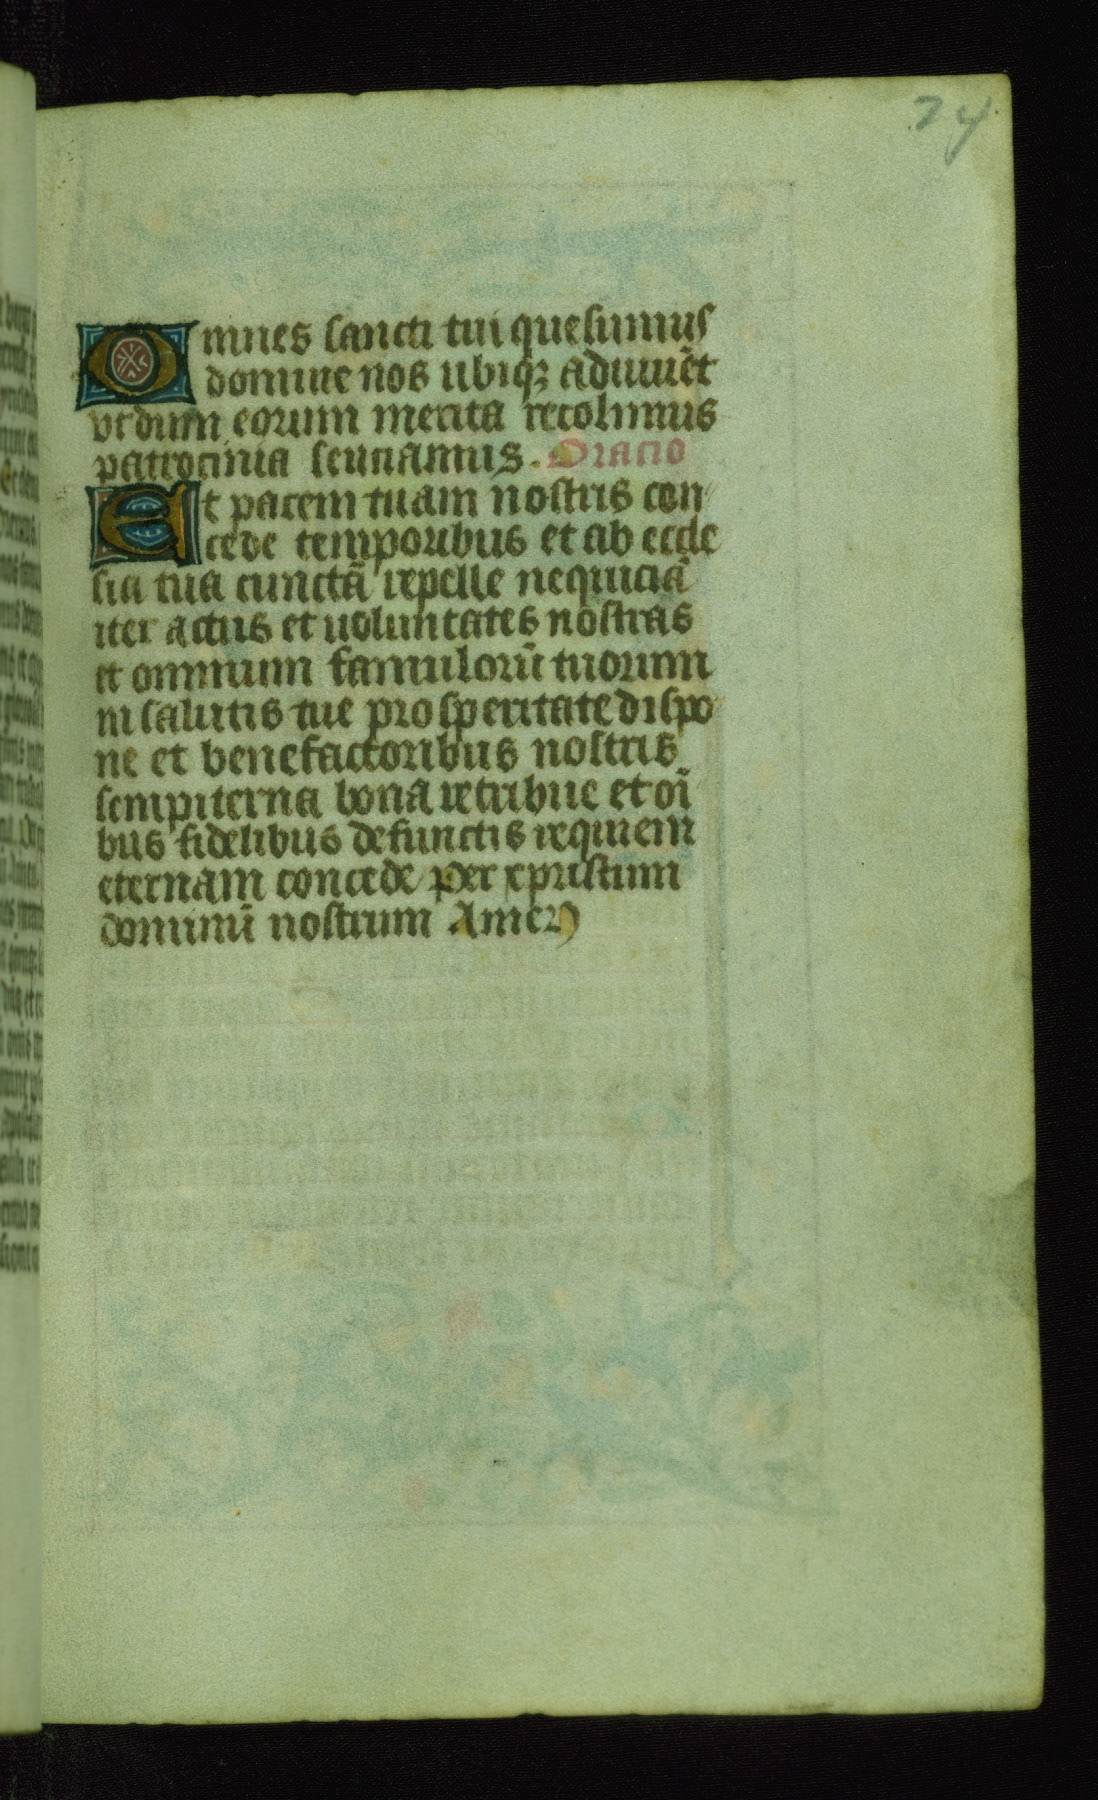 24
Omnes sancti tui quesumus
domine nos ubiqꝫ adiuuēt
vt dum eorum merita recolimus
patrocinia senciamus. Oracio
Et pacem tuam nostris con
cede temporibus et ab eccle
sia tua cunctā repelle nequiciā
iter actus et uoluntates nostras
et omnium famulorū tuorum
in salutis tue prosperitate dispo
ne et benefactoribus nostris
sempiterna bona retribue et oī
bus fidelibus defunctis requiem
eternam concede Per xpristum
dominū nostrum Amen